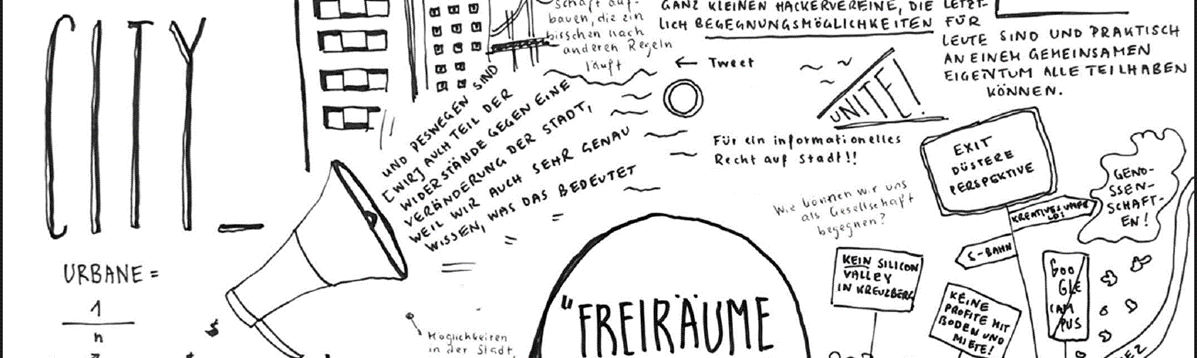 CITY_
URBANE =
1
n
$
schaft auf-
bauen, die ein
bisschen nach
anderen Regeln
läuft
GANZ KLEINEN HACKERVEREINE, DIE LETZT-
LICH BEGEGNUNGSMÖGLICHKEITEN FÜR
LEUTE SIND UND PRAKTISCH
AN EINEM GEMEINSAMEN
EIGENTUM ALLE TEILHABEN
KÖNNEN.
← Tweet
UNITE!
Für ein informationelles
Recht auf Stadt!!
UND DESWEGEN SIND
[WIR] AUCH TEIL DER
WIDERSTÄNDE GEGEN EINE
VERÄNDERUNG DER STADT,
WEIL WIR AUCH SEHR GENAU
WISSEN, WAS DAS BEDEUTET
Wie können wir uns
als Gesellschaft
begegnen?
EXIT
DÜSTERE
PERSPEKTIVE
GENO-
SSEN-
SCHAFT-
EN!
S-BAHN
KEIN SILICON
VALLEY
IN KREUZBERG
KEINE
PROFITE MIT
BODEN UND
MIETE!
GOO
GLE
CAM
PUS
"FREIRÄUME
Möglichkeiten
in der Stadt,